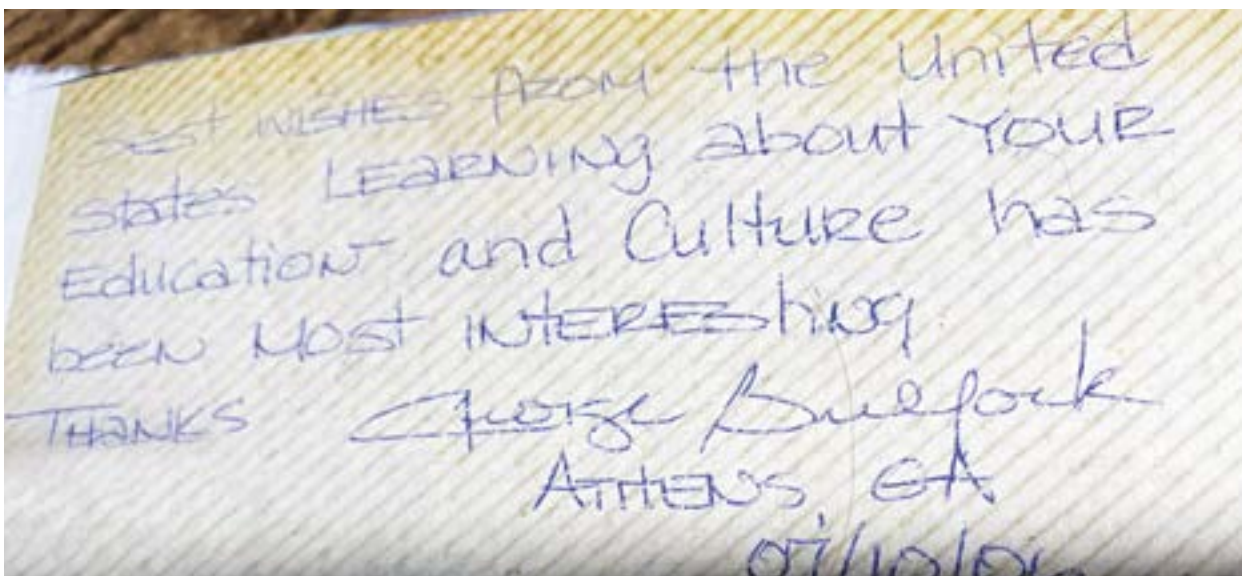 Best wishes from the United
states Learning about YOUR
Education and Culture has
been Most INTERESting
THANKS George
ATHENS, GA